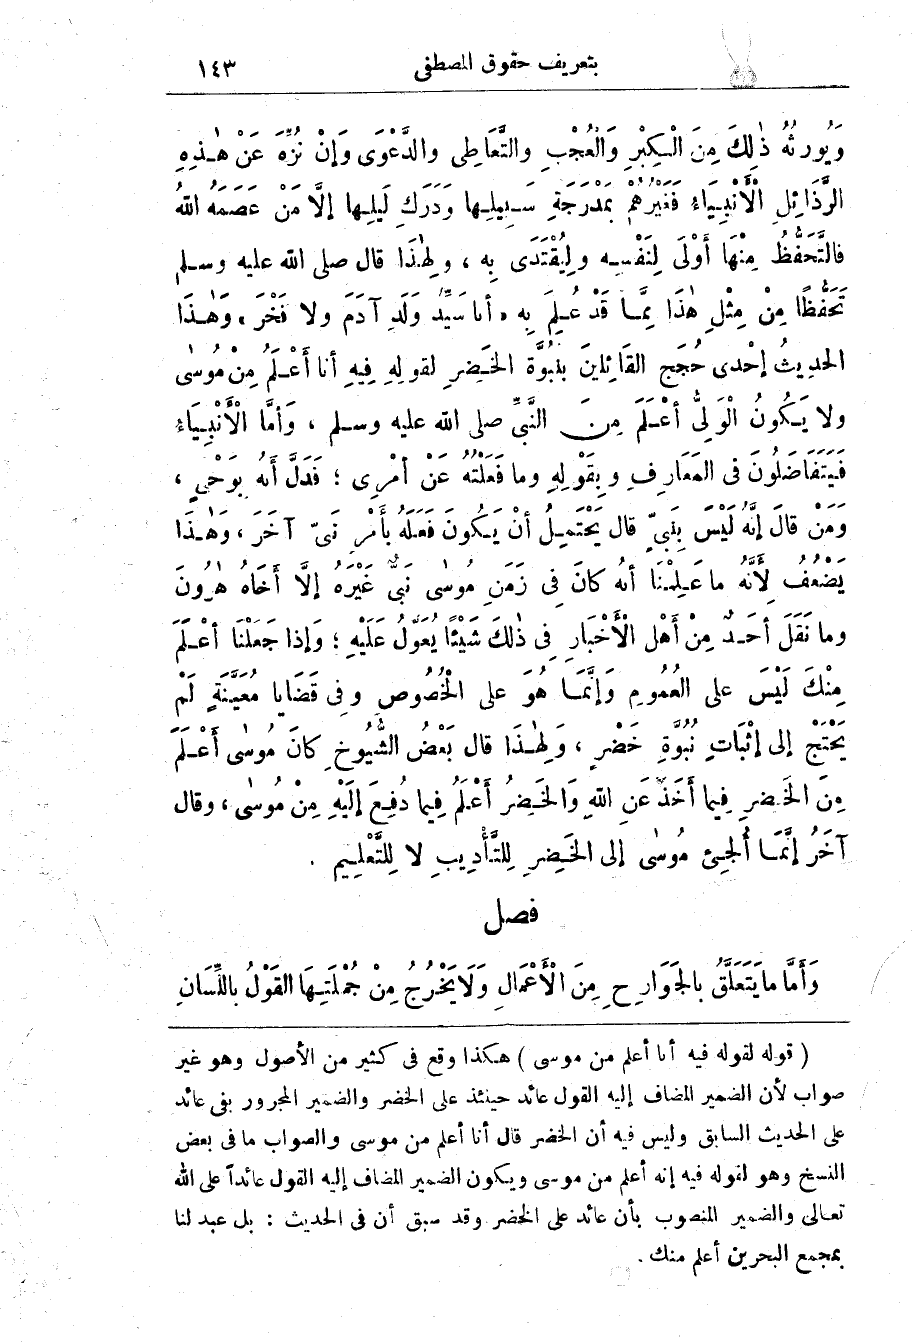 بتعريف حقوق المصطفى ١٤٣
وَيُورِثُهُ ذٰلِكَ مِنَ الْكِبْرِ وَالْعُجْبِ والتَّعَاطِى والدَّعْوَى وَإِنْ نُزِّهَ عَنْ هٰذِهِ
الرَّذَائِلِ الْأَنْبِيَاءُ فَغَيْرُهُمْ بِمَدْرَجَةِ سَبِيلِهَا وَدَرَكِ لَيْلِهَا إلَّا مَنْ عَصَمَهُ اللهُ
فالتَّحَفُّظُ مِنْهَا أَوْلَى لِنَفْسِهِ وَلِيُقْتَدَى بِهِ ، وَلِهٰذَا قال صلى الله عليه وسلم
تَحَفُّظًا مِنْ مِثْلِ هٰذَا مِمَّا قَدْ عُلِمَ بِهِ «أنا سَيِّدُ وَلَدِ آدَمَ ولا فَخْرَ» وَهٰذَا
الحديثُ إحْدى حُجَجِ القَائِلِينَ بِنُبُوَّةِ الخَضِرِ لقولِهِ فِيهِ أنا أَعْلَمُ مِنْ مُوسٰى
ولا يَكُونُ الْوَلِىُّ أَعْلَمَ مِنَ النَّبِىِّ صلى الله عليه وسلم ، وَأَمَّا الْأَنْبِيَاءُ
فَيَتَفَاضَلُونَ فى المَعَارِفِ وبِقَوْلِهِ وما فَعَلْتُهُ عَنْ أَمْرِى ؛ فَدَلَّ أَنَّهُ بِوَحْىٍ ،
وَمَنْ قالَ إنَّهُ لَيْسَ بِنَبِىٍّ قال يَحْتَمِلُ أنْ يَكُونَ فَعَلَهُ بِأَمْرِ نَبِىٍّ آخَرَ ، وَهٰذَا
يَضْعُفُ لِأَنَّهُ ما عَلِمْنَا أَنه كانَ فِى زَمَنِ مُوسٰى نَبِىٌّ غَيْرَهُ إلَّا أَخَاهُ هٰرُونَ
وما نَقَلَ أحَدٌ مِنْ أَهْلِ الْأَخْبَارِ فِى ذٰلِكَ شَيْئًا يُعَوَّلُ عَلَيْهِ ؛ وَإذا جَعَلْنَا أَعْلَمَ
مِنْكَ لَيْسَ على العُمُومِ وَإِنَّمَا هُوَ على الْخُصُوصِ وفى قَضَايا مُعَيَّنَةٍ لَمْ
يَحْتَجْ إلى إِثْبَاتِ نُبُوَّةِ خَضْرٍ ، وَلِهٰذَا قال بَعْضُ الشُّيُوخِ كانَ مُوسٰى أَعْلَمَ
مِنَ الخَضِرِ فِيما أَخَذَ عَنِ اللهِ وَالخَضِرُ أَعْلَمُ فِيما دُفِعَ إلَيْهِ مِنْ مُوسٰى ، وقال
آخَرُ إنَّمَا أُلْجِئَ مُوسٰى إلى الخَضِرِ لِلتَّأْدِيبِ لا لِلتَّعْلِيمِ .
فصل
وَأَمَّا ما يَتَعَلَّقُ بِالجَوَارِحِ مِنَ الْأَعْمَالِ وَلَا يَخْرُجُ مِنْ جُمْلَتِهَا القَوْلُ بِاللِّسَانِ
( قوله لقوله فيه أنا أعلم من موسى ) هكذا وقع فى كثير من الأصول وهو غير
صواب لأن الضمير المضاف إليه القول عائد حينئذ على الخضر والضمير المجرور بفى عائد
على الحديث السابق وليس فيه أن الخضر قال أنا أعلم من موسى والصواب ما فى بعض
النسخ وهو لقوله فيه إنه أعلم من موسى ويكون الضمير المضاف إليه القول عائداً على الله
تعالى والضمير المنصوب بأن عائد على الخضر وقد سبق أن فى الحديث : بل عبد لنا
بمجمع البحرين أعلم منك .